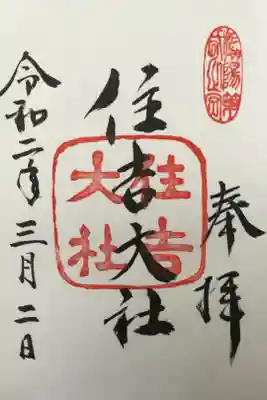 奉拝
住吉大社
住吉
大社
令和二年三月二日